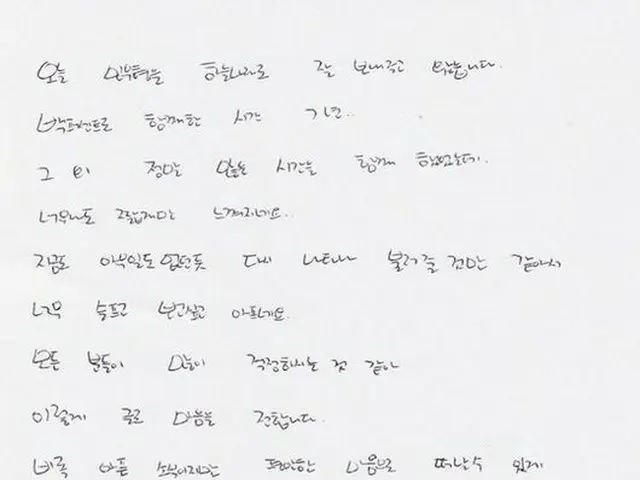 오늘 민수형을 하늘나라로 잘 보내주고 왔습니다.
백퍼센트로 함께한 시간 7년..
그 외 정말 많은 시간을 함께 했었는데.
너무나도 그립게만 느껴지네요..
지금도 아무일도 없던듯 다시 나타나 불러줄 것만 같아서
너무 슬프고 보고싶고 아프네요.
모든 분들이 많이 걱정하시는 것 같아
이렇게 글로 마음을 전합니다.
비록 아픈 소식이지만 편안한 마음으로 떠날수 있게